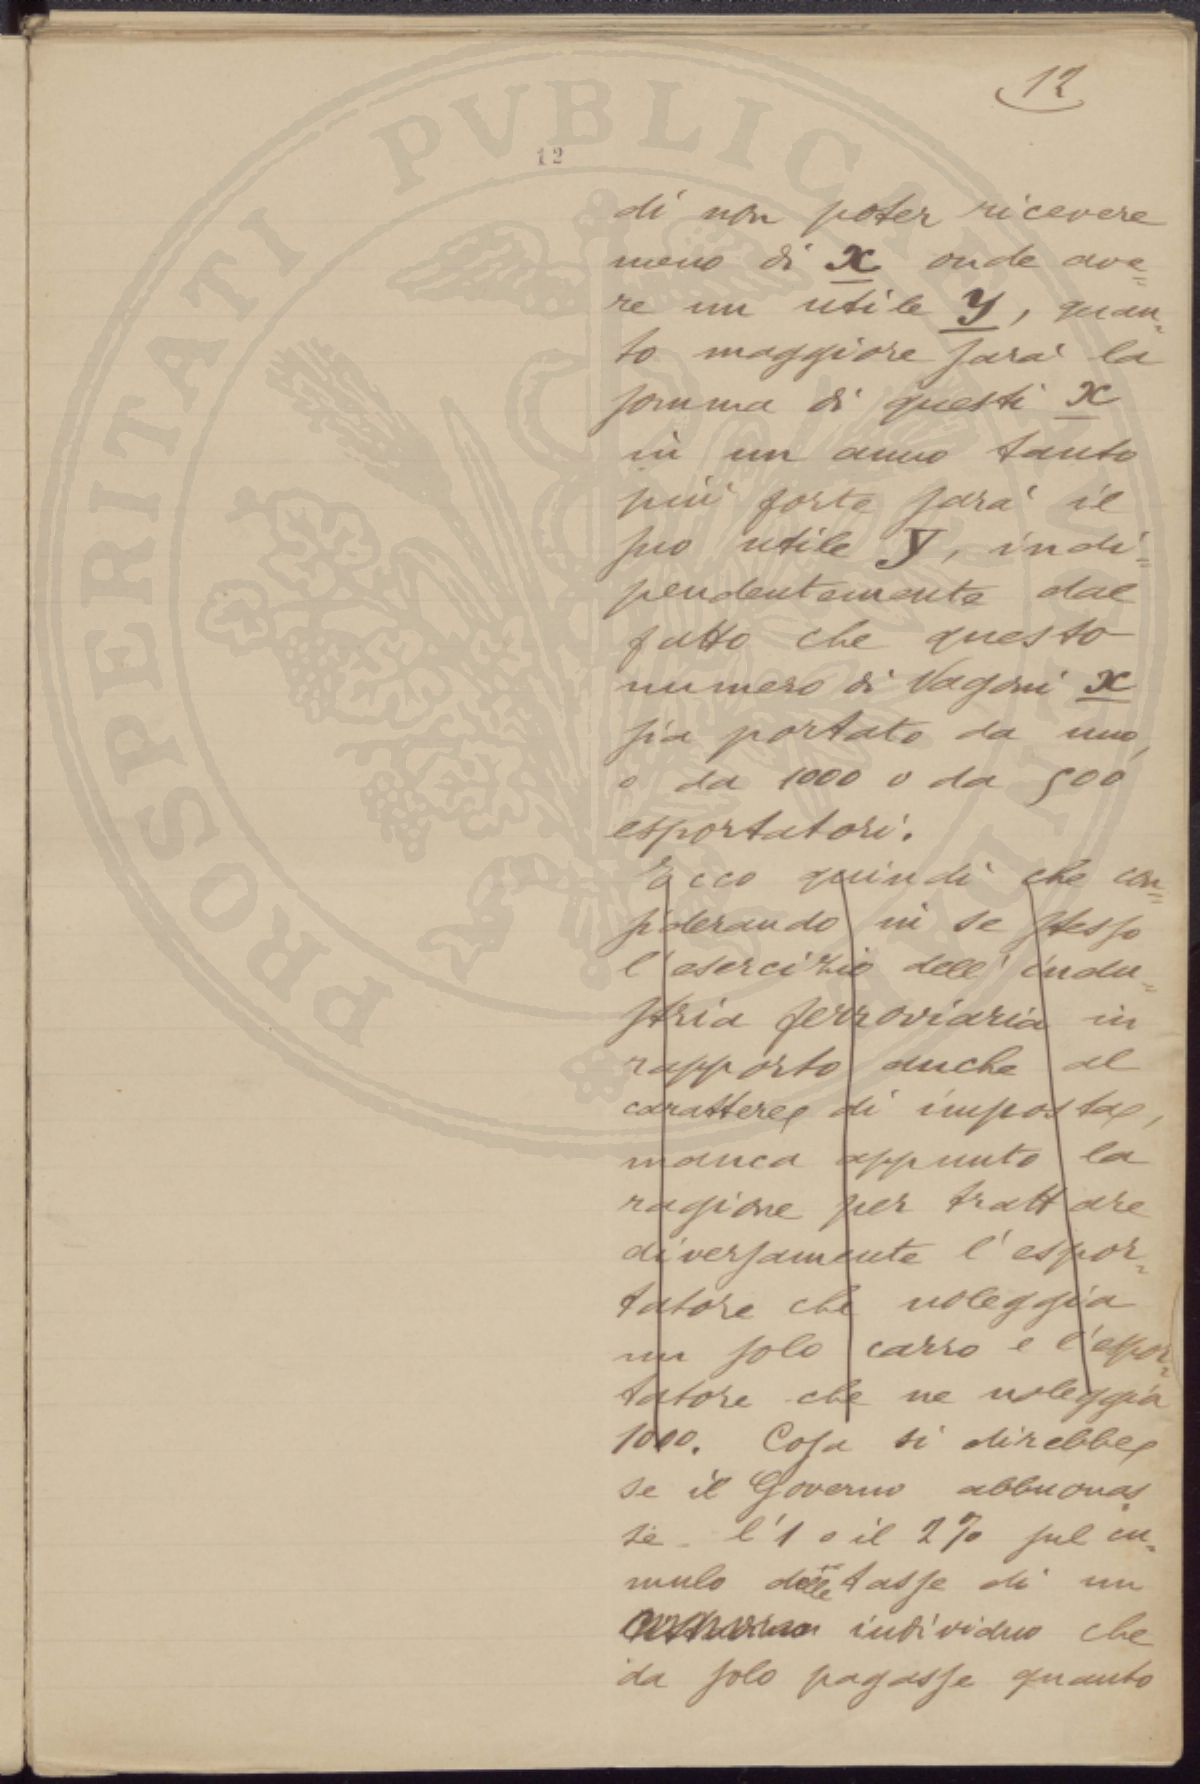 12
12
di non poter ricevere
meno di x onde ave=
re un utile y, quan=
to maggiore sarà la
somma di questi x
in un anno tanto
più forte sarà il
suo utile y, indi=
pendentemente dal
fatto che questo
numero di Vagoni x
sia portato da uno,
o da 1000 o da 500
esportatori.
Ecco quindi che con=
siderando in se stesso
l'esercizio dell'indu=
stria ferroviaria in
rapporto anche al
carattere di imposta,
manca appunto la
ragione per trattare
diversamente l'espor=
tatore che noleggia
un solo carro e l'espor=
tatore che ne noleggia
1000. Cosa si direbbe
se il Governo abbuonas
se l'1 o il 2% sul cu=
mulo delle tasse di un
individuo che
da solo pagasse quanto
PROSPERITATI PVBLICAE